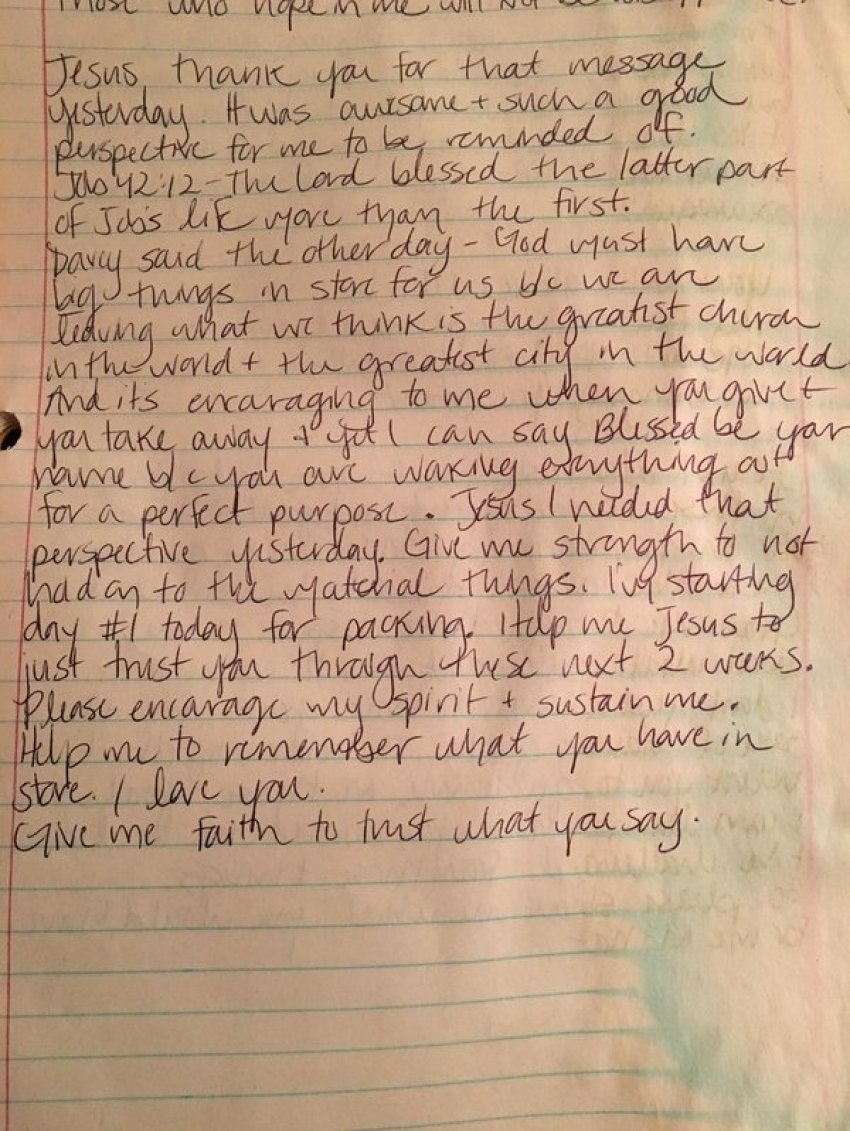 those who hope in me will not be
Jesus, thank you for that message
yesterday. It was awesome + such a good
perspective for me to be reminded of.
Job 42:12 - The Lord blessed the latter part
of Job's life more than the first.
Darcy said the other day - God must have
big things in store for us b/c we are
leaving what we think is the greatest church
in the world + the greatest city in the world
And it's encouraging to me when you give +
you take away + yet I can say Blessed be your
name b/c you are working everything out
for a perfect purpose. Jesus I needed that
perspective yesterday. Give me strength to not
hold on to the material things. I'm starting
day #1 today for packing. Help me Jesus to
just trust you through these next 2 weeks.
Please encourage my spirit + sustain me.
Help me to remember what you have in
store. I love you.
Give me faith to trust what you say.